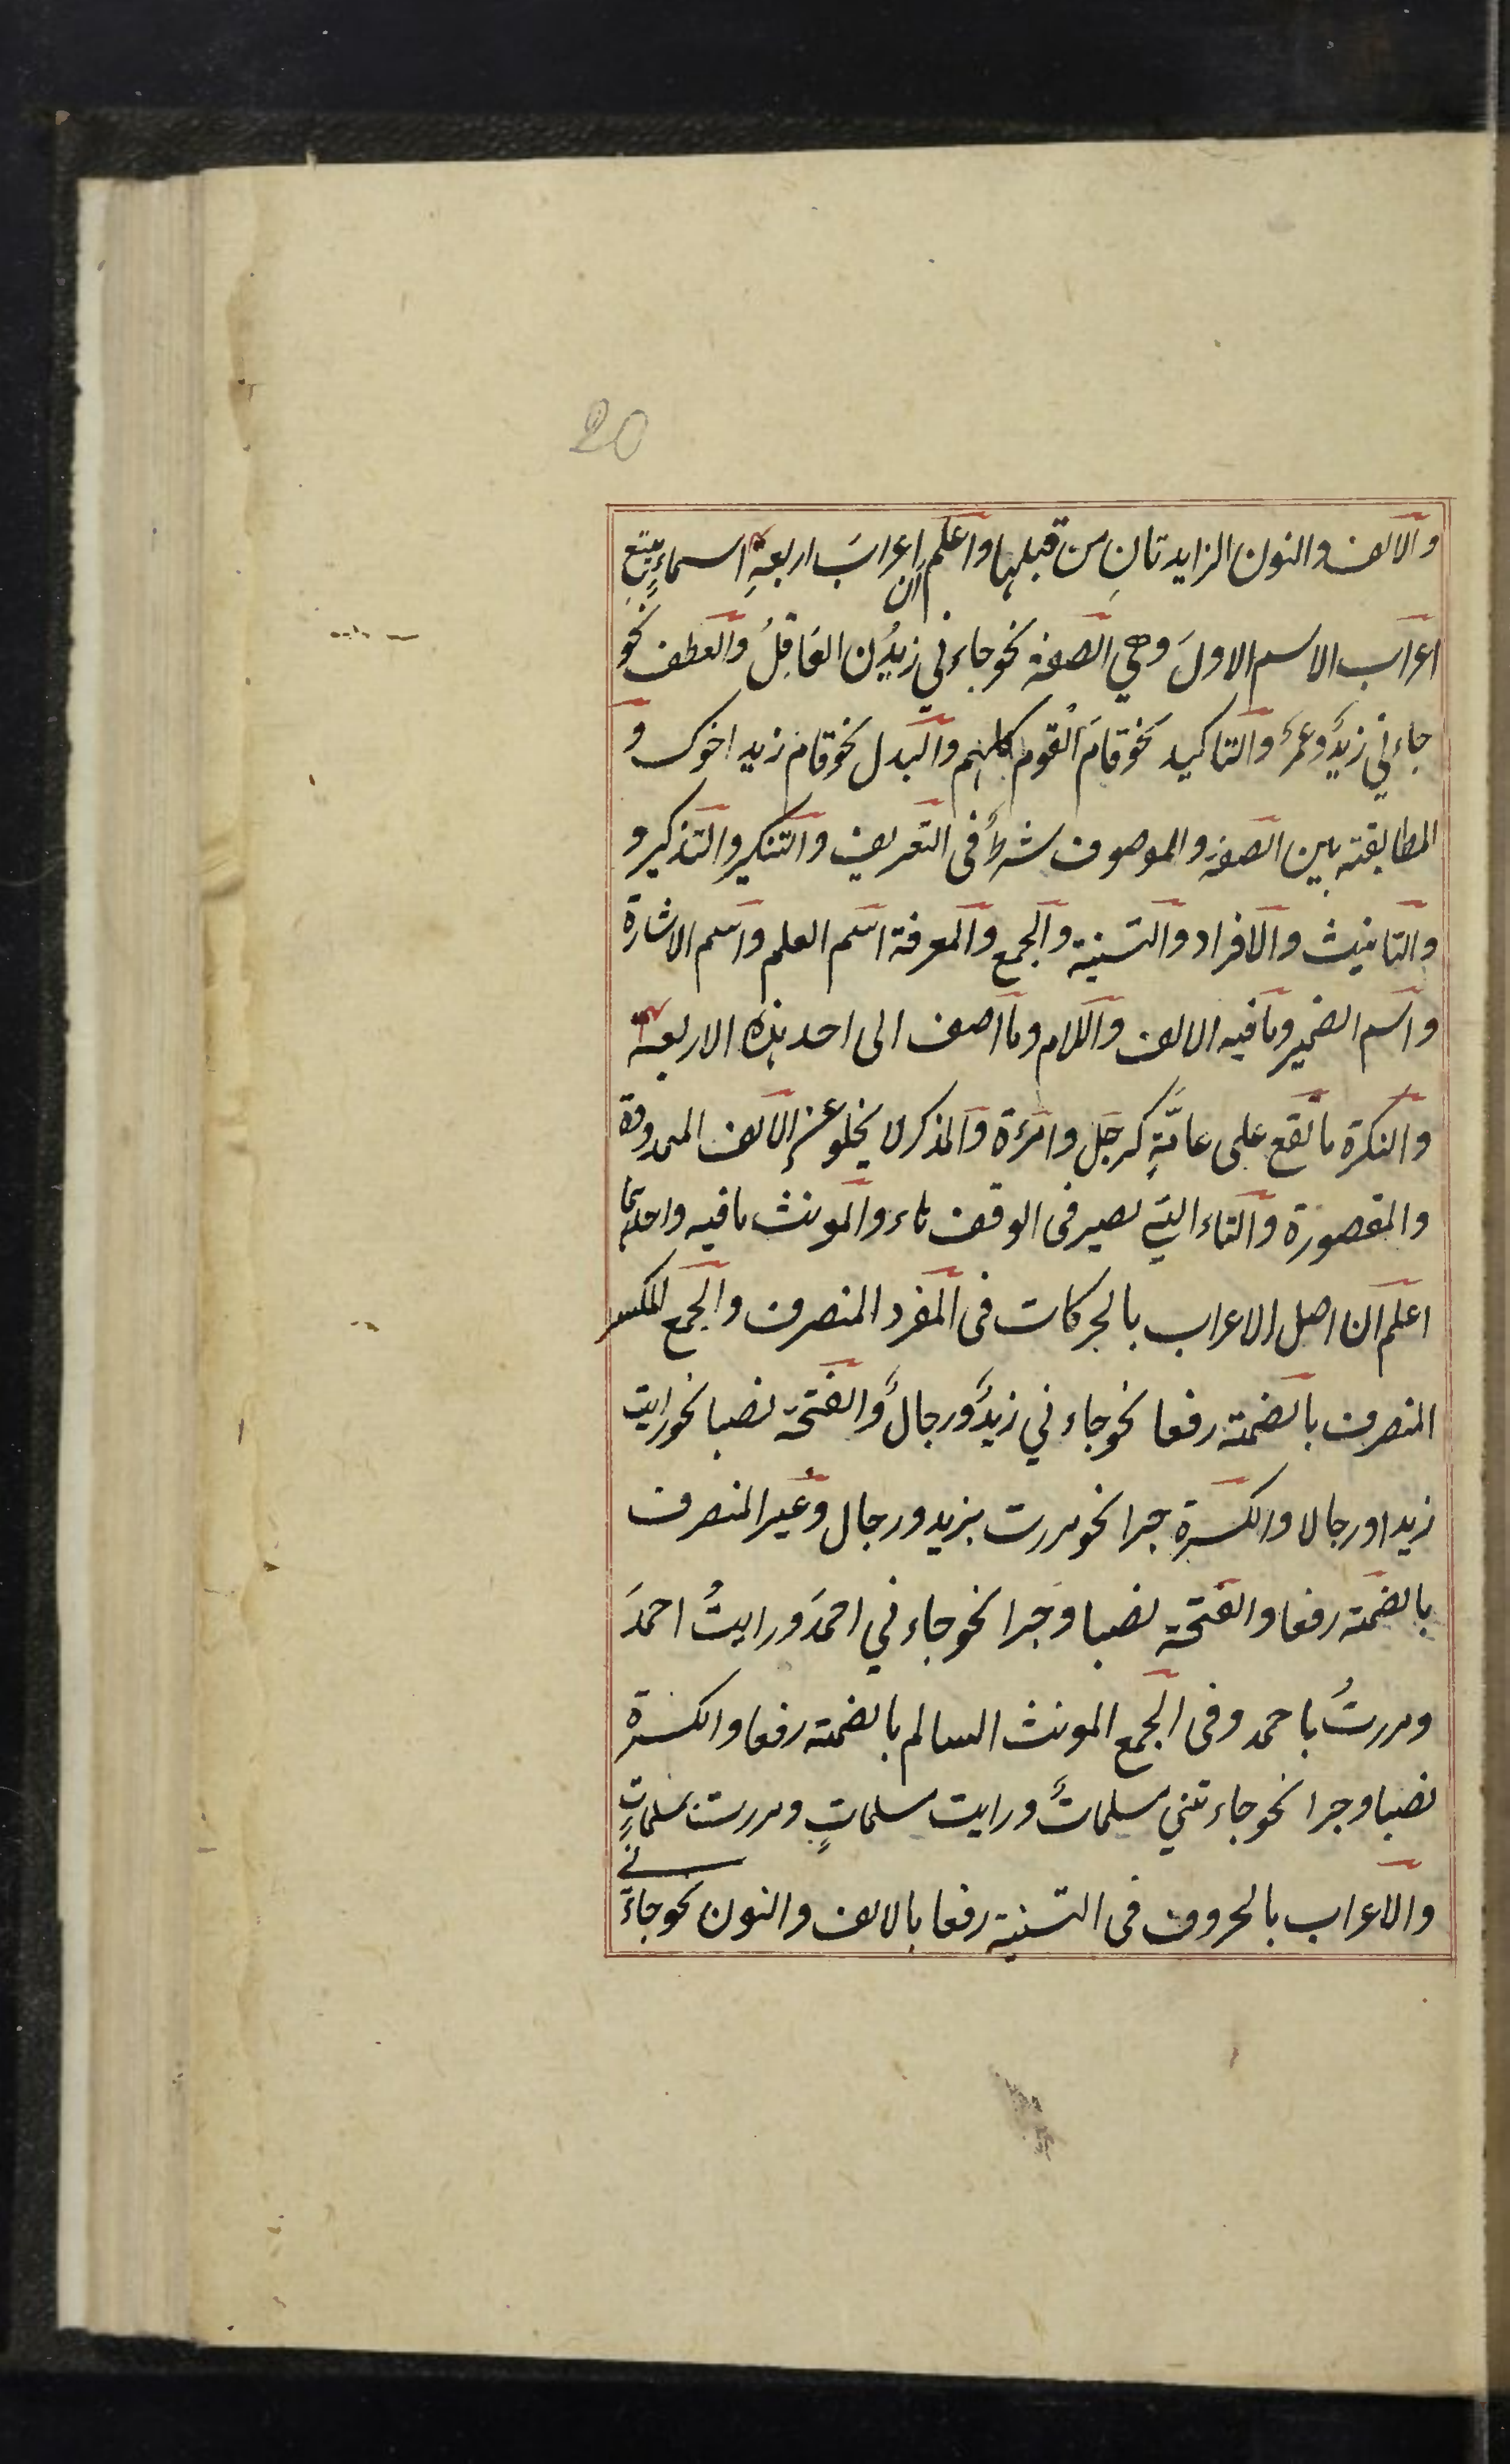 20
والالف والنون الزايدتانِ من قبلها واعلم ان اعرابَ اربعةِ اسماءٍ يتبع
اعراب الاسم الاولَ وهي الصفة نحو جاءني زيدُن العَاقِلُ والعطف نحو
جاءني زيدٌ وعمرٌ والتاكيد نحو قامَ القوم كلهم والبدل نحو قام زيد اخوك و
المطابقة بين الصفة والموصوف شرطٌ فى التعريف والتنكير والتذكير و
والتانيث والافراد والتثنية والجمع والمعرفة اسم العلم واسم الاشارة
واسم الضمير وما فيه الالف واللام وما اضف الى احد هذه الاربعة
والنكرة ما تقع على عامَّةٍ كرجل وامرءة والمذكر لا يخلو عن الالف الممدودة
والمقصورة والتاء التي تصير فى الوقف هاء والمونث ما فيه واحدتها
اعلم ان اصل الاعراب بالحركات فى المفرد المنصرف والجمع المكسر
المنصرف بالضمة رفعا نحو جاءني زيدٌ ورجالٌ والفتحة نصبا نحو رايت
زيدا ورجالا والكسرة جرا نحو مررت بزيد ورجال وغير المنصرف
بالضمة رفعا والفتحة نصبا وجرا نحو جاءني احمدَ ورايتُ احمدَ
ومررتُ باحمد وفى الجمع المونث السالم بالضمة رفعا والكسرة
نصبا وجرا نحو جاءتني مسلماتٌ ورايت مسلماتٍ ومررت بمسلماتٍ
والاعراب بالحروف فى التثنية رفعا بالالف والنون نحو جاءَنى